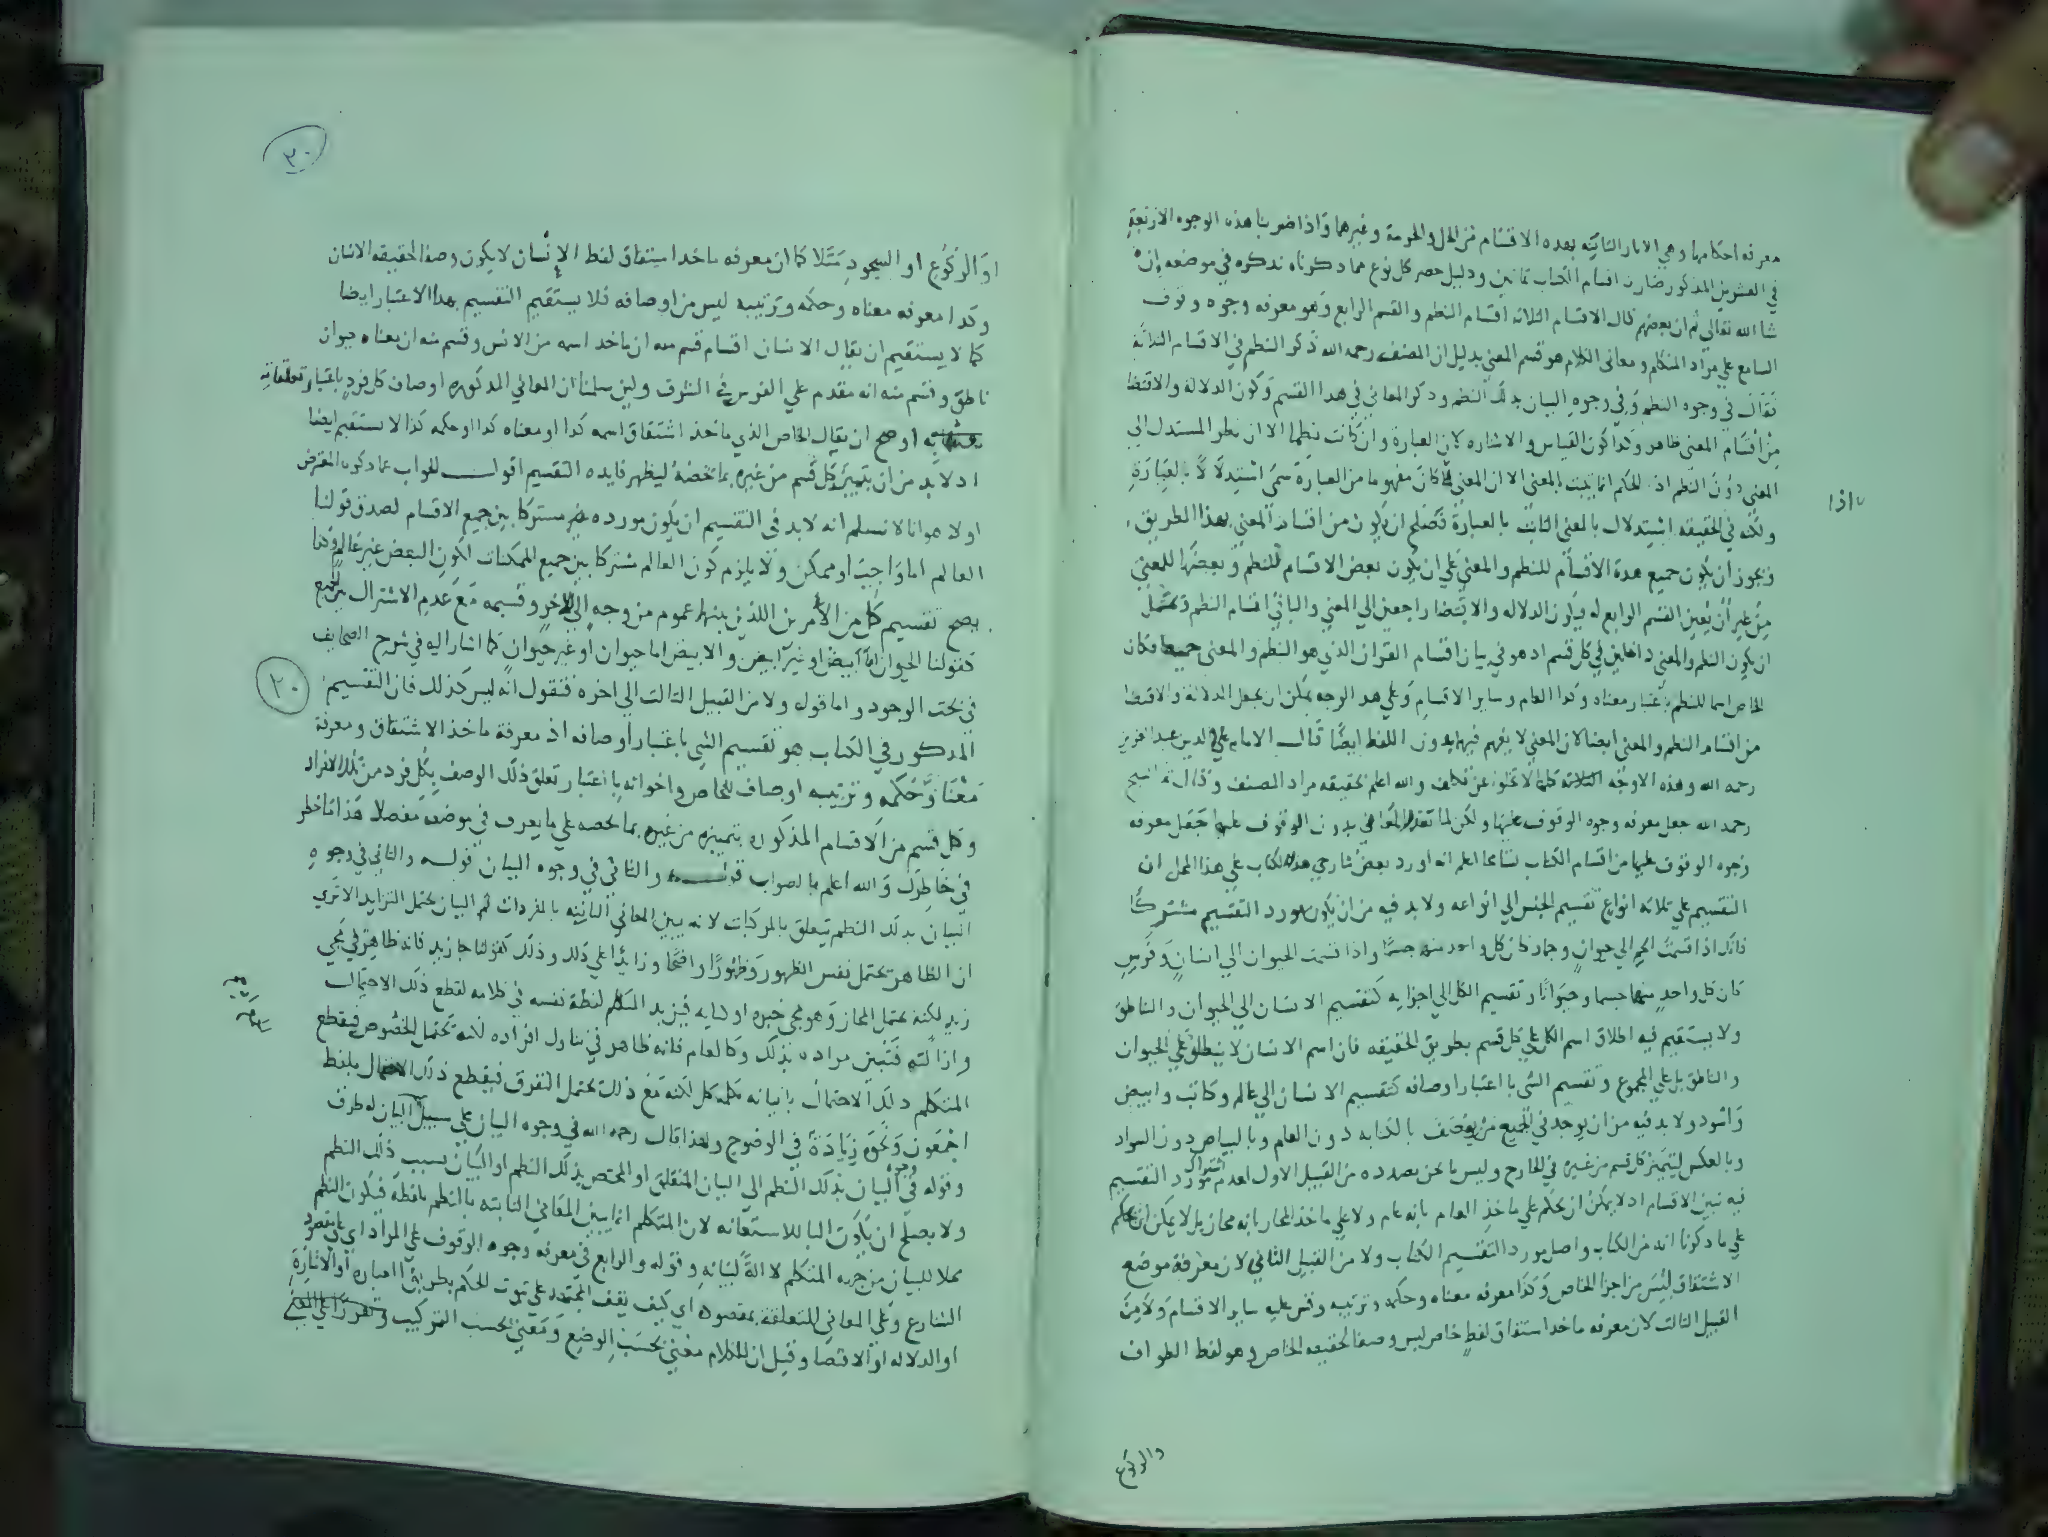 معرفه احكامها وهي الاثار الثابته بهده الاقسام من الحل والحرمة وغيرهما واذا ضربنا هذه الوجوه الاربعة
في العشرين المذكور صارت اقسام الكتاب ثمانين ودليل حصر كل نوع مما ذكرناه نذكره في موضعه ان
شا الله تعالى ثم ان بعضهم قال الاقسام الثلاثه اقسام النظم والقسم الرابع وهو معرفه وجوه وقوف
السامع علي مراد المتكلم ومعاني الكلام هو قسم المعني بدليل ان المصنف رحمه الله ذكر النظم في الاقسام الثلاثة
فقال في وجوه النظم وفي وجوه البيان بذلك النظم وذكر المعاني في هدا القسم وكون الدلاله والاقتضا
من اقسام المعني ظاهر وكدا كون القياس والاشاره لان العبارة وان كانت نظما الا ان نظر المستدل الي
المعني دون النظم اذ الحكم انما يثبت بالمعني الا ان المعني لما كان مفهوما من العبارة سمي استدلالا بالعبارة
ولكنه في الحقيقه استدلال بالمعني الثابت بالعبارة فصلح ان يكون من اقسام المعني بهذا الطريق
ويجوز ان يكون جميع هده الاقسام للنظم والمعني علي ان يكون بعض الاقسام للنظم وبعضها للمعني
من غير ان يعين القسم الرابع له ويكون الدلاله والاقتضا راجعين الي المعني والباقي اقسام النظم ويحتمل
ان يكون النظم والمعني داخلين في كل قسم اذ هو في بيان اقسام القران الذي هو النظم والمعني جميعا فكان
الخاص اسما للنظم باعتبار معناه وكدا العام وساير الاقسام وعلي هدا الوجه يمكن ان يجعل الدلالة والاقتضا
من اقسام النظم والمعني ايضا لان المعني لا يفهم فيهما بدون اللفظ ايضا قال الامام علا الدين عبد العزيز
رحمه الله وهذه الاوجه الثلاثه كلها لا تخلوا عن تكلف والله اعلم بحقيقه مراد المصنف وقال الشيخ
رحمه الله جعل معرفه وجوه الوقوف عليها ولكن لما تعذر المعاني بدون الوقوف عليها جعل معرفه
وجوه الوقوف عليها من اقسام الكتاب تسامحا اعلم انه اورد بعض شارحي هذا الكتاب علي هذا المحل ان
التقسيم علي ثلاثه انواع تقسيم الجنس الي انواعه ولا بد فيه من ان يكون مورد التقسيم مشتركا
فانك اذا قسمت الجسم الي حيوان وجماد كان كل واحد منهما جسما واذا قسمت الحيوان الي انسان وفرس
كان كل واحد منهما جسما وحيوانا وتقسيم الكل الي اجزايه كتقسيم الانسان الي الحيوان والناطق
ولا يستقيم فيه اطلاق اسم الكل علي كل قسم بطريق الحقيقه فان اسم الانسان لا ينطلق علي الحيوان
والناطق بل علي المجموع وتقسيم الشي باعتبار اوصافه كتقسيم الانسان الي عالم وكاتب وابيض
واسود ولا بد فيه من ان يوجد في الجميع من يوصف بالكتابه دون العلم وبالبياض دون السواد
وبالعكس ليتميز كل قسم من غيره في الخارج وليس ما نحن بصدده من القبيل الاول لعدم اشتراك مورد التقسيم
فيه بين الاقسام اد لا يمكن ان يحكم علي ماخذ العام بانه عام ولا علي ماخذ المجاز بانه مجاز بل لا يمكن ان يحكم
علي ما ذكرنا انه من الكتاب واصل مورد التقسيم الكتاب ولا من القبيل الثاني لان معرفة موضع
الاشتقاق ليس من اجزا الخاص وكذا معرفه معناه وحكمه وترتيبه وقس عليه ساير الاقسام ولا من
القبيل الثالث لان معرفه ماخد اشتقاق لفظ خاص ليس وصفا لحقيقه الخاص وهو لفظ الطواف
والركوع
واذا
٢٠
او الركوع او السجود مثلا كما ان معرفه ماخد اشتقاق لفظ الانسان لا يكون وصفا لحقيقه الانسان
وكدا معرفه معناه وحكمه وترتيبه ليس من اوصافه فلا يستقيم التقسيم بهدا الاعتبار ايضا
كما لا يستقيم ان يقال الانسان اقسام قسم منه ان ماخد اسمه من الانس وقسم منه ان معناه حيوان
ناطق وقسم منه انه مقدم علي الفرس في الشرف ولين سلمنا ان المعاني المدكوره اوصاف كل فرد باعتبار تعلقها به
اوصح ان يقال الخاص الذي ماخذ اشتقاق اسمه كدا او معناه كدا او حكمه كذا لا يستقيم ايضا
اد لا بد من ان يتميز كل قسم من غيره بما يخصه ليظهر فايده التقسيم اقول الجواب عما ذكره المعترض
اولا هو انا لا نسلم انه لابد في التقسيم ان يكون مورده مشتركا بين جميع الاقسام لصدق قولنا
العالم اما واجب او ممكن ولا يلزم كون العالم مشتركا بين جميع الممكنات لكون البعض غير عالم وكما
يصح تقسيم كل من الامرين اللذين بينهما عموم من وجه الي الاخر وقسيمه مع عدم الاشتراك بين الجميع
كقولنا الحيوان اما ابيض او غير ابيض والابيض اما حيوان او غير حيوان كما اشار اليه في شرح الصحايف
في بحث الوجود واما قوله ولا من القبيل الثالث الي اخره فنقول انه ليس كذلك فان التقسيم
المدكور في الكتاب هو تقسيم الشي باعتبار اوصافه اذ معرفة ماخذ الاشتقاق ومعرفة
معناه وحكمه وترتيبه اوصاف للخاص واخواته باعتبار تعلق ذلك الوصف بكل فرد من تلك الافراد
وكل قسم من الاقسام المذكوره يتميز من غيره بما يخصه علي ما يعرف في موضعه مفصلا هذا ما خطر
في خاطرك والله اعلم بالصواب قوله والثاني في وجوه البيان قوله والثاني في وجوه
البيان بدلك النظم يتعلق بالمركبات لانه يبين المعاني الثابته بالمفردات ثم البيان يحتمل التزايد الا تري
ان الظاهر يحتمل نفس الظهور وظهورا واضحا وزايدا علي ذلك وذلك كقولنا جا زيد فانه ظاهر في مجي
زيد لكنه يحتمل المجاز وهو مجي خبره او كتابه فيزيد المتكلم لفظة نفسه في كلامه لقطع ذلك الاحتمال
وازالته فتبين مراده بذلك وكالعام فانه ظاهر في تناول افراده لكنه يحتمل الخصوص فيقطع
المتكلم ذلك الاحتمال باتيانه كلمه كل لكنه مع ذلك يحتمل التفرق فيقطع ذلك الاحتمال بلفظ
اجمعون ونحوه زيادة في الوضوح ولهذا قال رحمه الله في وجوه البيان علي سبيل البيان له طرف
وقوله في وجوه البيان بذلك النظم الي البيان المتعلق او المختص بذلك النظم او البيان بسبب ذلك النظم
ولا يصلح ان يكون البا للاستعانه لان المتكلم انما يبين المعاني الثابته بالنظم بلفظه فيكون النظم
محلا للبيان من جهه المتكلم لا الة لبيانه وقوله والرابع في معرفه وجوه الوقوف علي المراد اي ما يقصود
الشارع وعلي المعاني المتعلقة بمقصوده اي كيف يقف المجتهد علي ثبوت الحكم بطريق العباره او الاشارة
او الدلاله او الاقتضا وقيل ان للكلام معني بحسب الوضع ومعني بحسب التركيب
٢٠